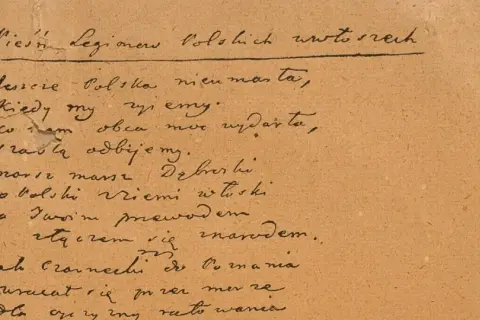 Pieśń Legionow Polskich wewłoszech
Jeszcze Polska nieumarła,
kiedy my żyiemy.
co nam obca moc wydarła,
szablą odbijemy.
marsz marsz Dąbroski
do Polski zziemi włoski
za Twoim przewodem
złączem się znarodem.
Jak Czarnecki do Poznania
wracał się przez morze
dla oyczyzny ratowania